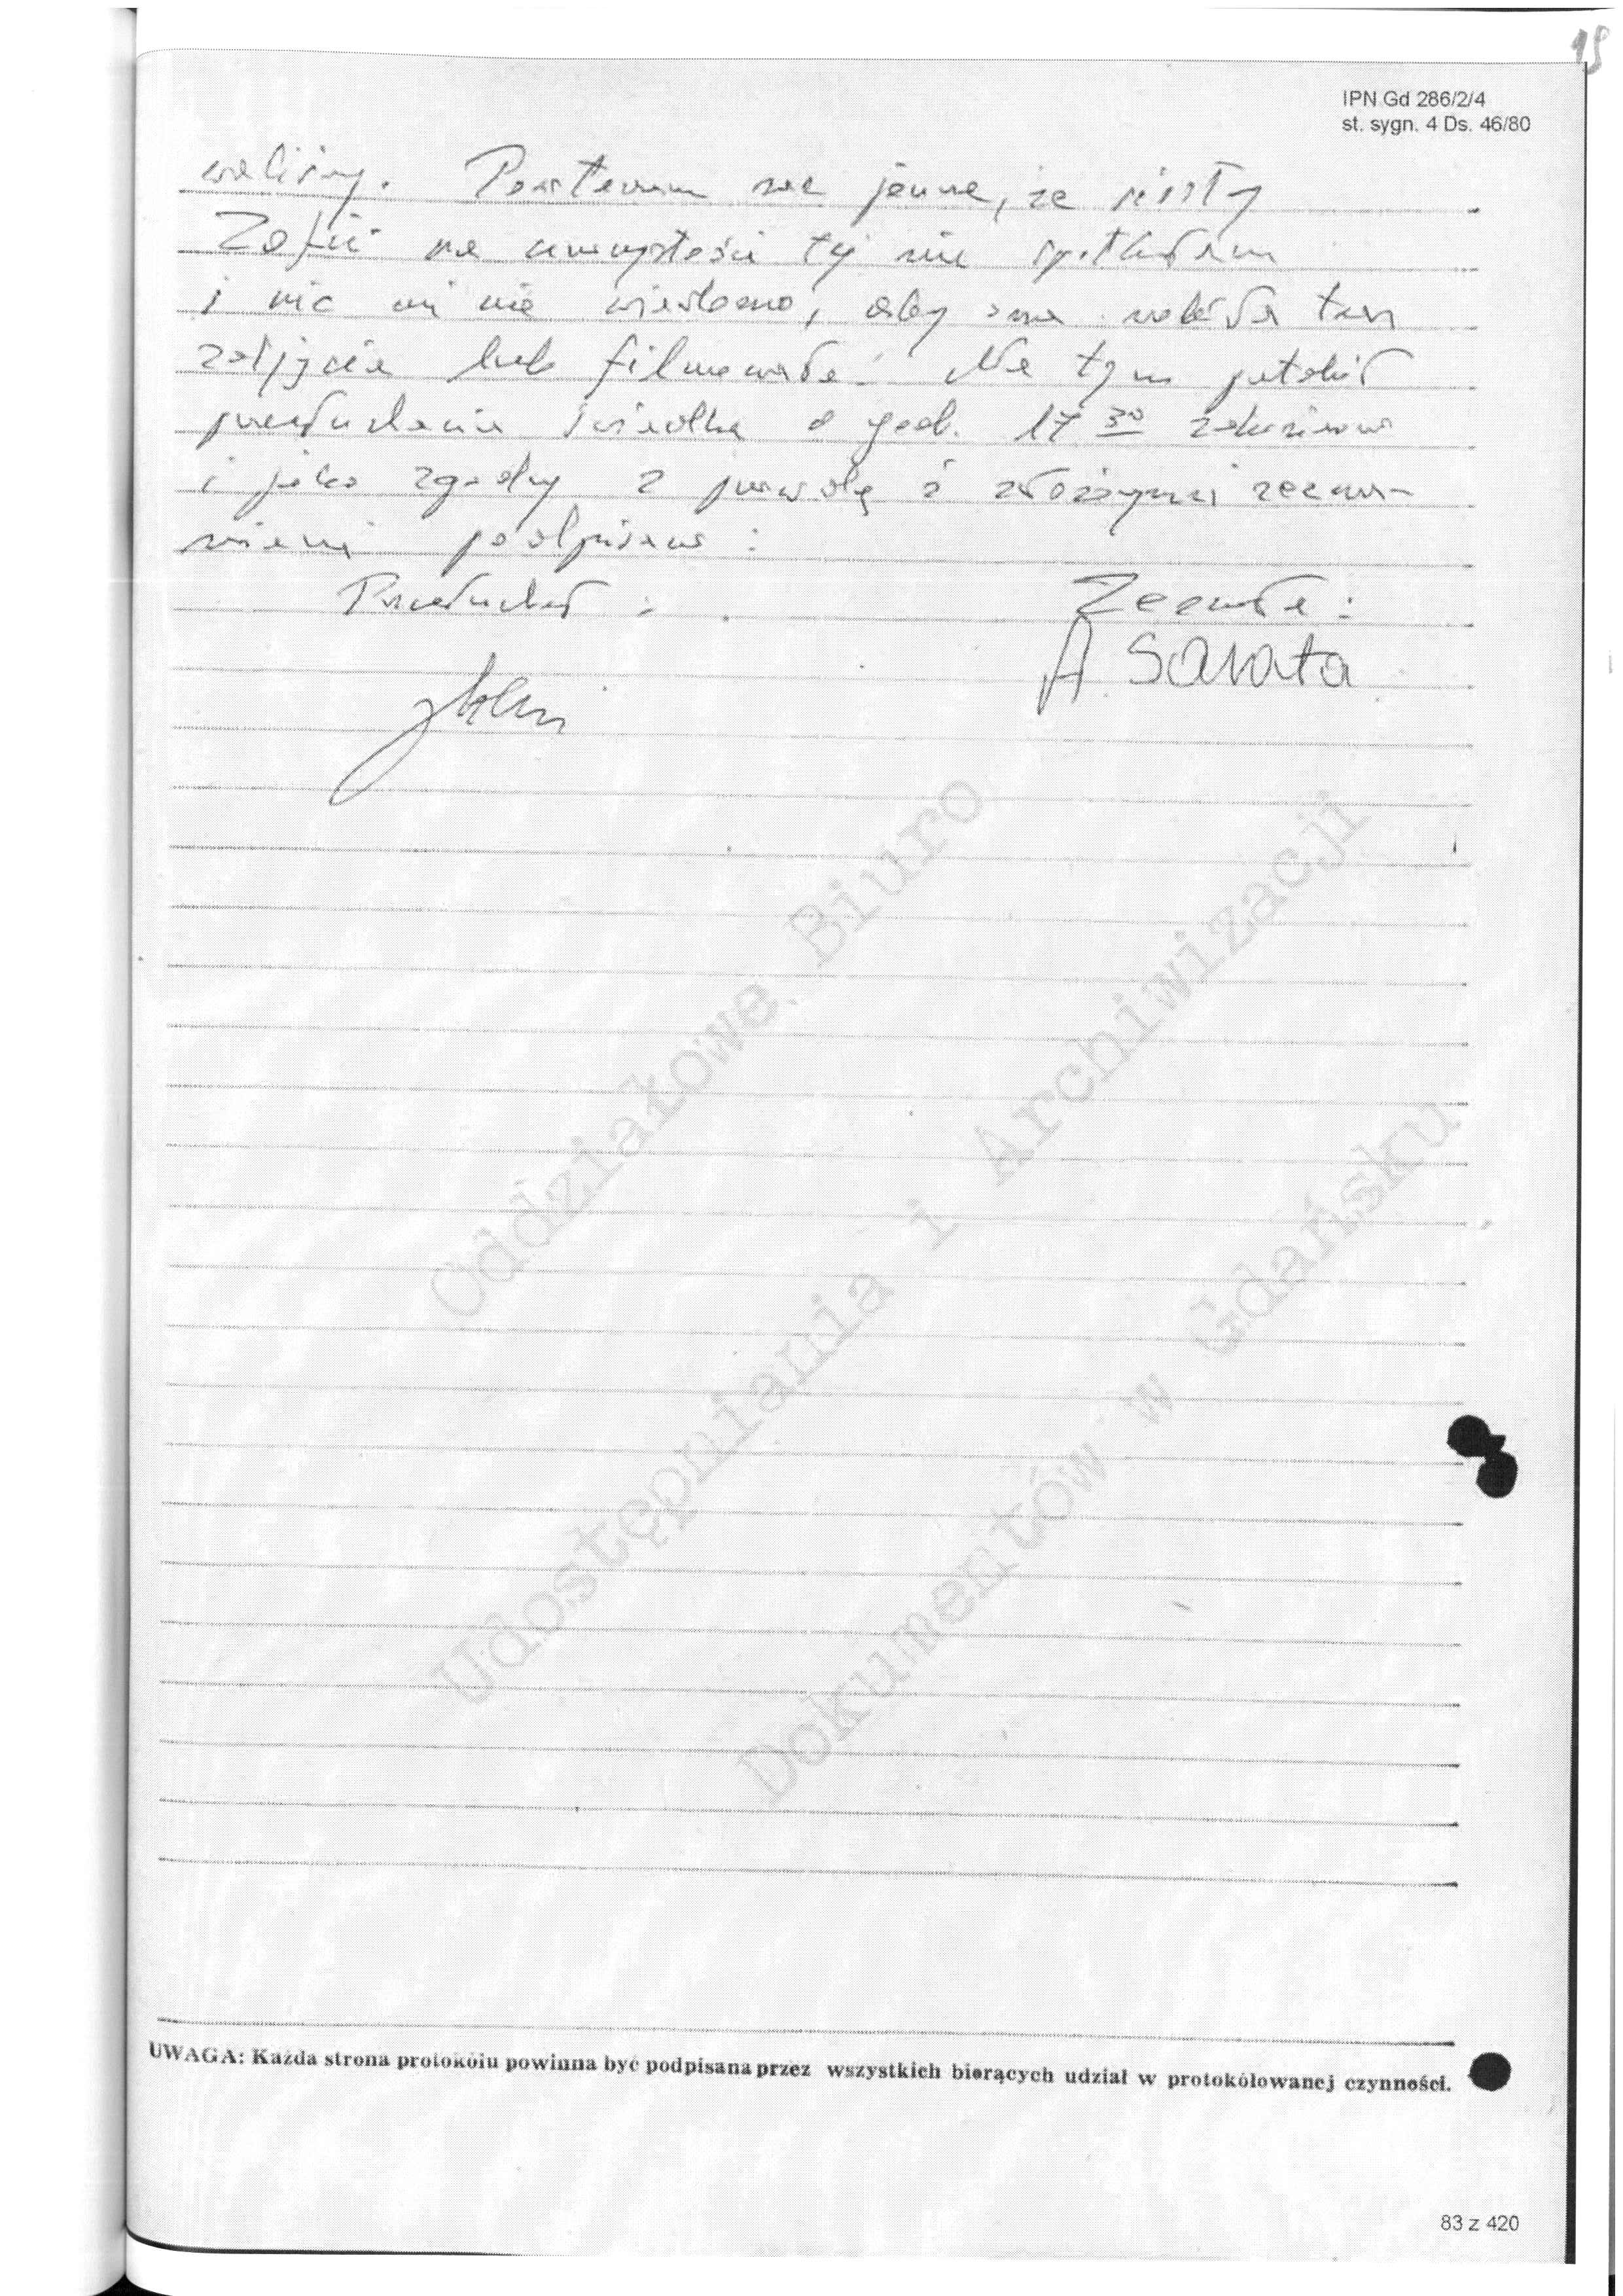 19
IPN Gd 286/2/4
st. sygn. 4 Ds. 46/80
waliśmy. Powtarzam raz jeszcze, że siostry
Zofii na uroczystości tej nie spotkałam
i nic mi nie wiadomo, aby ona robiła tam
zdjęcia lub filmowała. Na tym protokół
przesłuchania świadka o godz. 17 30 zakończono
i jako zgodny z prawdą i złożonymi zezna-
niami podpisano:
Przesłuchał: Zeznała:
A. Sarata
Oddziałowe Biuro
Udostępniania i Archiwizacji
Dokumentów w Gdańsku
UWAGA: Każda strona protokółu powinna być podpisana przez wszystkich biorących udział w protokółowanej czynności.
83 z 420